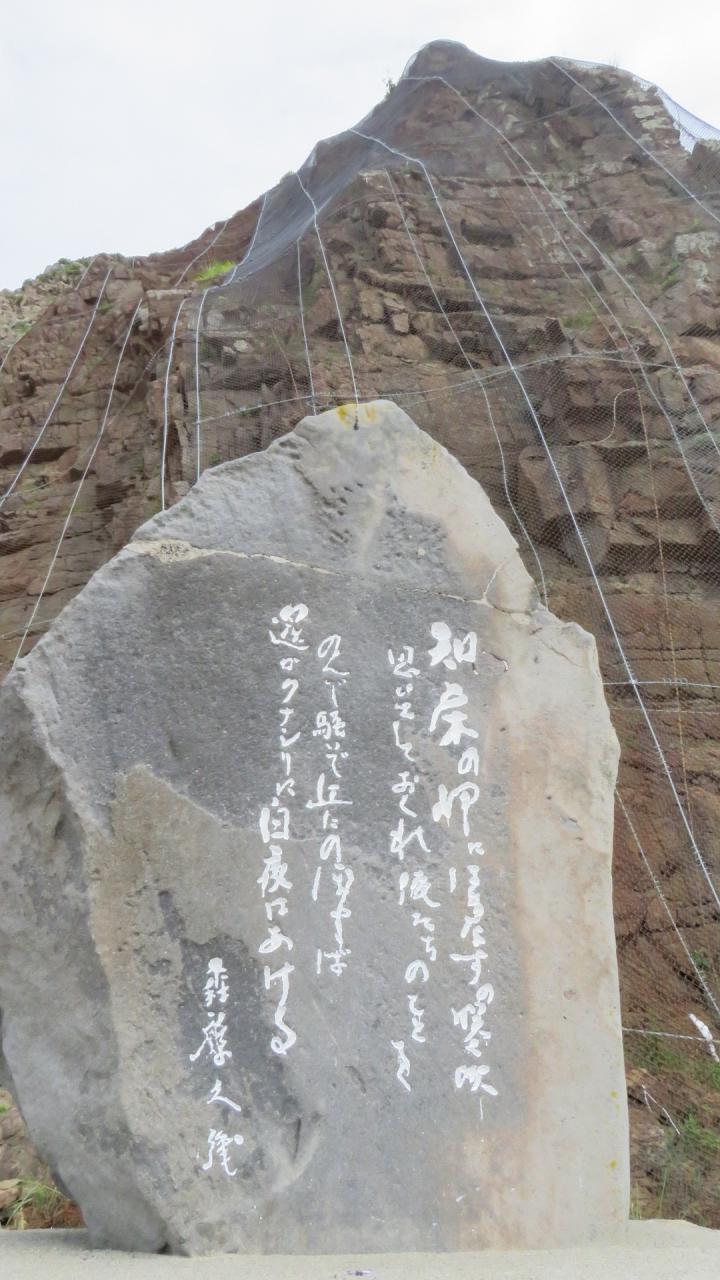 知床の岬にはまなすの咲く頃
思い出しておくれ俺たちのことを
のんで騒いで丘にのぼれば
遥かクナシリに白夜はあける
森繁久彌